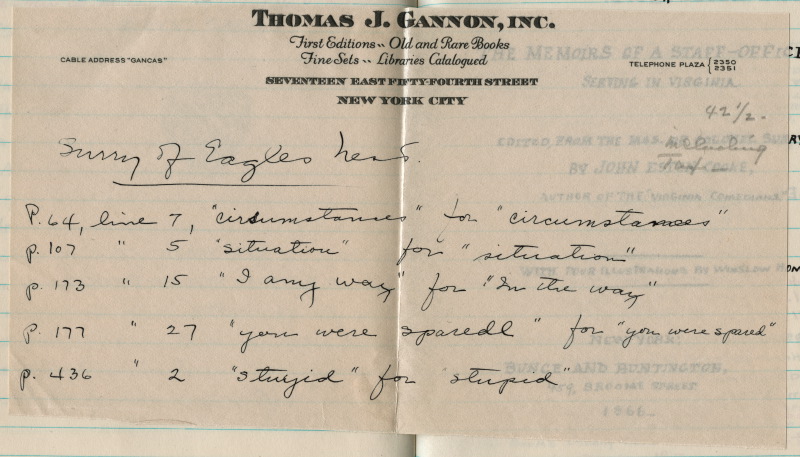 THOMAS J. GANNON, INC.
First Editions -- Old and Rare Books
Fine Sets -- Libraries Catalogued
CABLE ADDRESS "GANCAS"
TELEPHONE PLAZA { 2350 2351
SEVENTEEN EAST FIFTY-FOURTH STREET
NEW YORK CITY
42 1/2.
including
Tax
Surry of Eagles nest.
P. 64, line 7, "cirsumstances" for "circumstances"
p. 107 " 5 "situation" for "situation"
p. 173 " 15 "I any way" for "In the way"
p. 177 " 27 "you were sparedl" for "you were spared"
p. 436 " 2 "stuyid" for "stupid"
THE MEMOIRS OF A STAFF-OFFIC
SERVING IN VIRGINIA
EDITED, FROM THE MSS.
BY JOHN ESTEN COOKE,
AUTHOR OF THE "VIRGINIA COMEDIANS,"
WITH FOUR ILLUSTRATIONS BY WINSLOW
NEW YORK:
BUNCE AND HUNTINGTON,
BROOME STREET
1866.